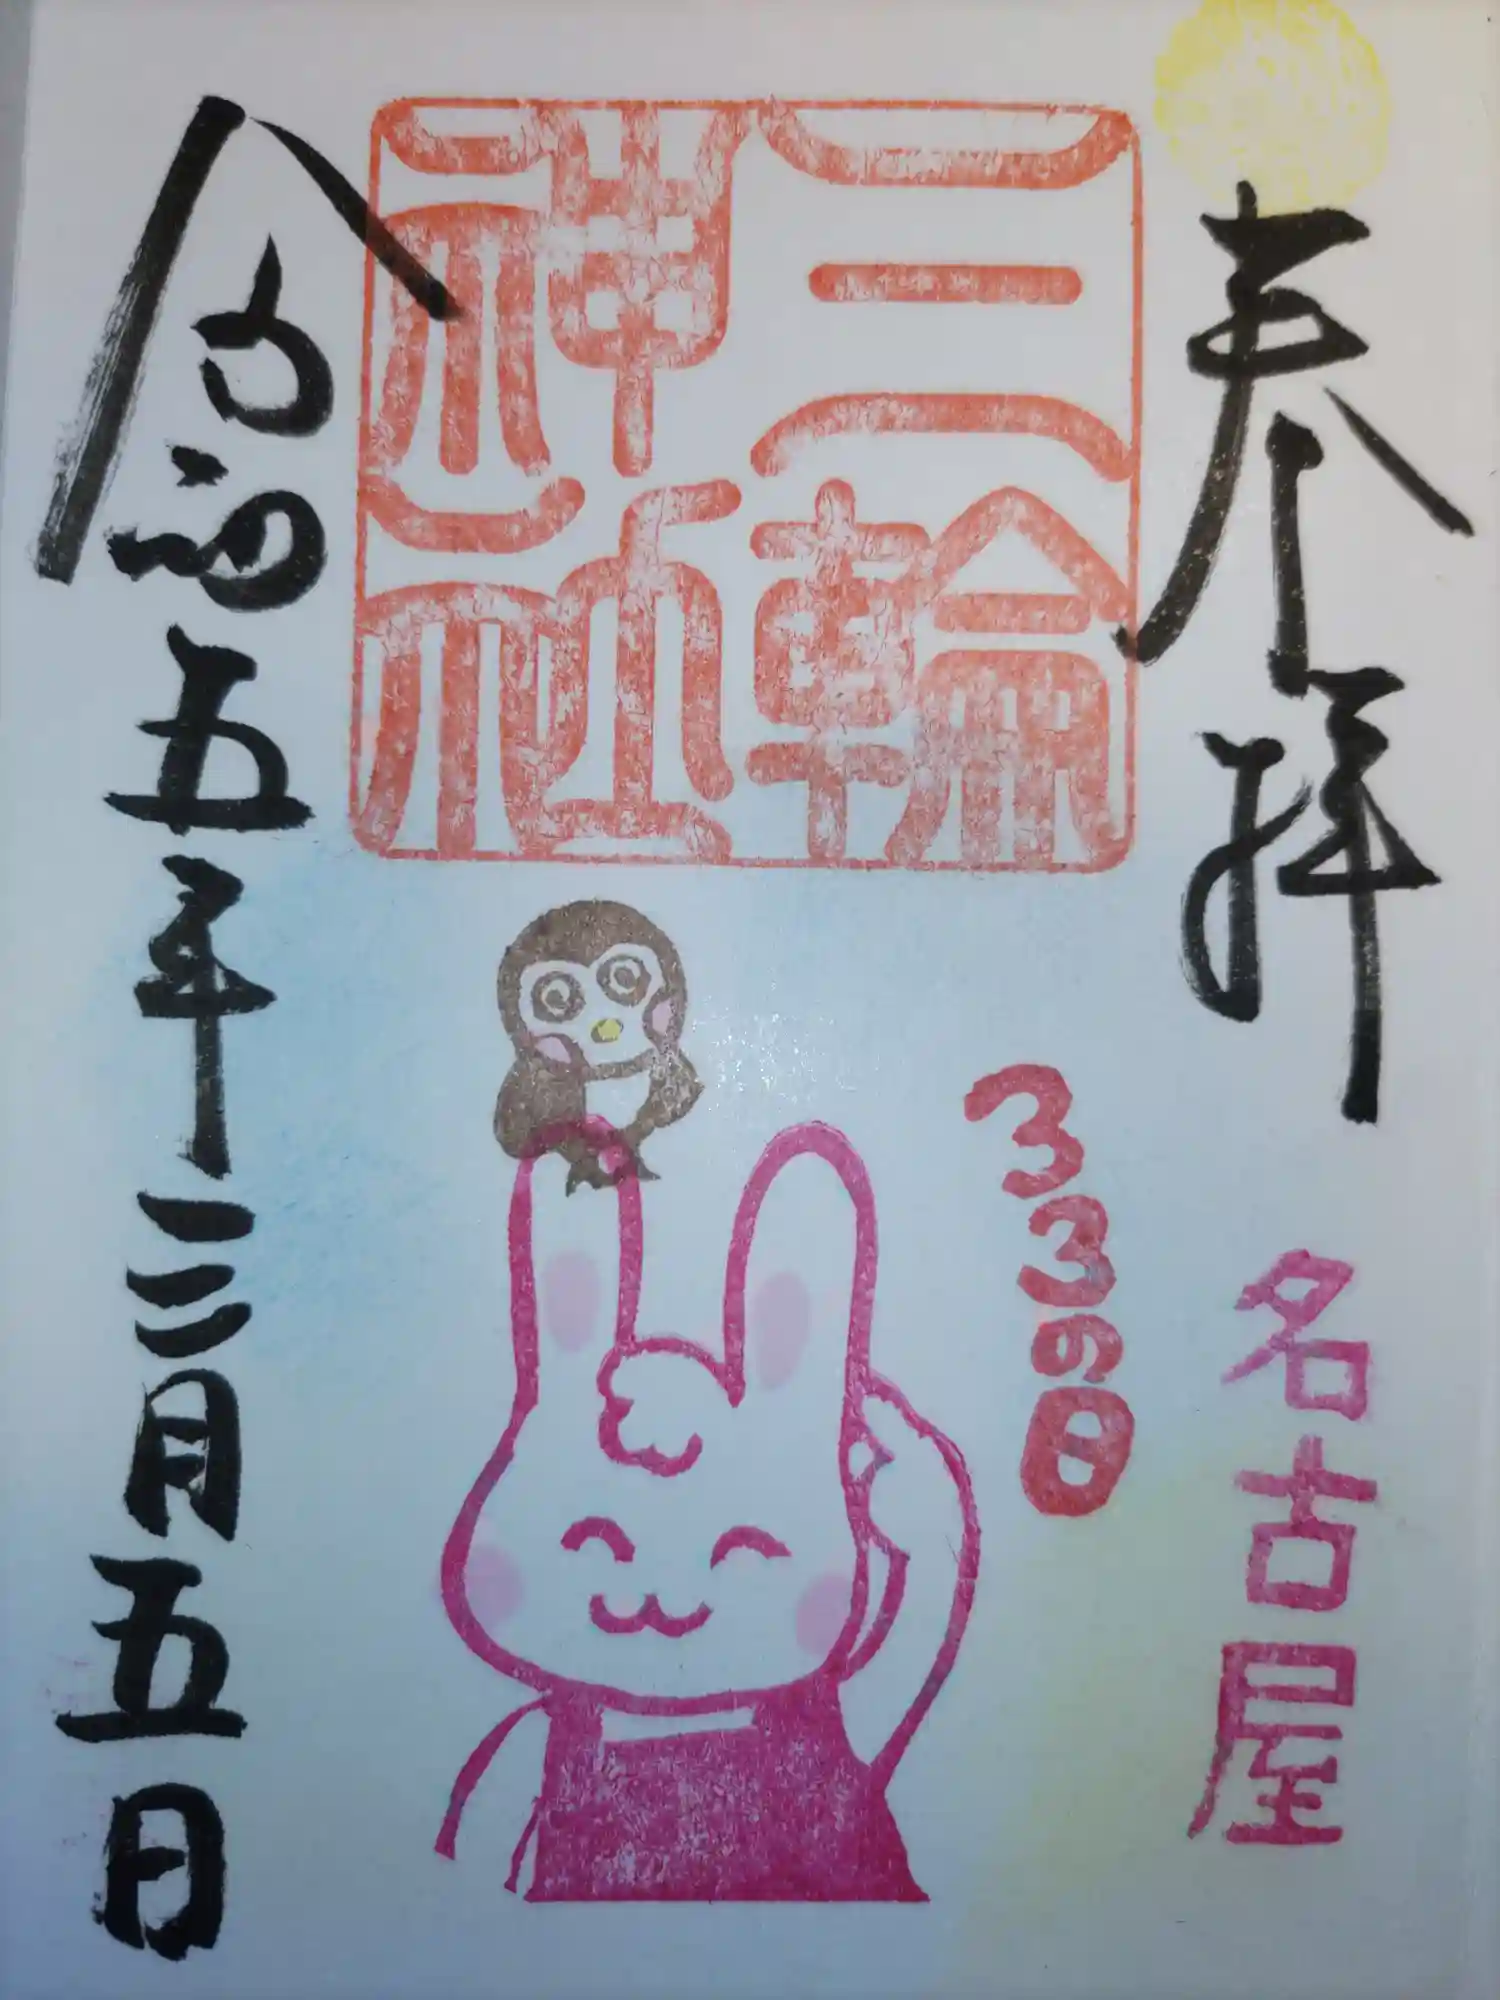 奉拝
名古屋
33の日
三輪
神社
令和五年三月五日